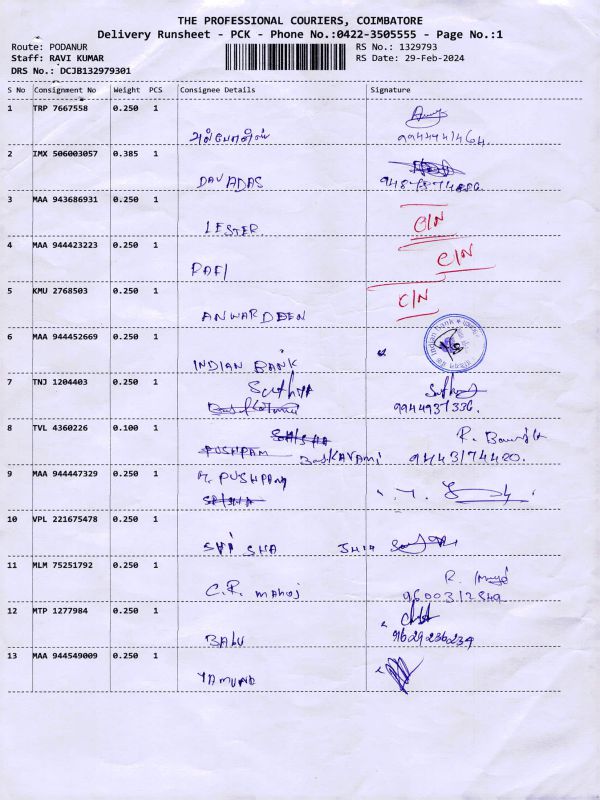 THE PROFESSIONAL COURIERS, COIMBATORE
Delivery Runsheet - PCK - Phone No.:0422-3505555 - Page No.:1
Route: PODANUR RS No.: 1329793
Staff: RAVI KUMAR RS Date: 29-Feb-2024
DRS No.: DCJB132979301
S No Consignment No Weight PCS Consignee Details Signature
1 TRP 7667558 0.250 1
2 IMX 506003057 0.385 1
DAVADAS
3 MAA 943686931 0.250 1
LESTER C/N
4 MAA 944423223 0.250 1
RAFI C/N
5 KMU 2768503 0.250 1
ANWARDEEN C/N
6 MAA 944452669 0.250 1
INDIAN BANK Indian Bank
7 TNJ 1204403 0.250 1
Sathya
9944937336.
8 TVL 4360226 0.100 1
PUSHPAM 9443174420.
9 MAA 944447329 0.250 1
10 VPL 221675478 0.250 1
11 MLM 75251792 0.250 1
C.R. manoj 9600312849
12 MTP 1277984 0.250 1
BALU 9629236239
13 MAA 944549009 0.250 1
YAMUNA